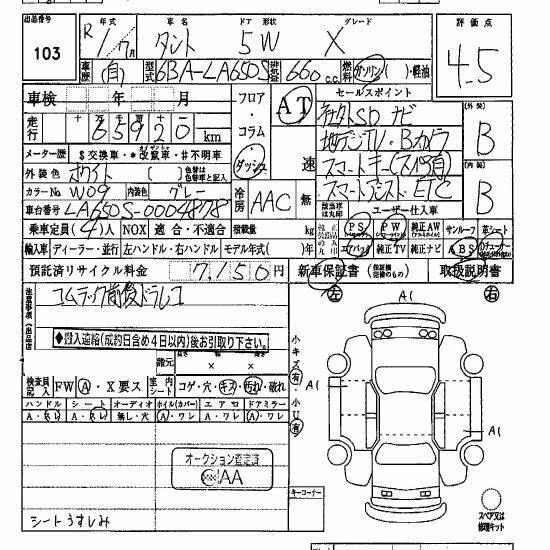 出品番号 年式 車名 ドア 形状 グレード 評価点
103 R 1/7月 タント 5W X 4.5
車歴 (自) 型式 6BA-LA650S 排気量 660 c.c. 燃料 ガソリン( )・軽油
車検 年 月 フロア・コラム・ダッシュ AT 速 セールスポイント
社外SDナビ
地デジTV・Bカメラ
スマートキー(ス付有)
スマートアシスト ETC
外装 B
内装 B
走行 十万 万 千 65920 km
メーター歴 $交換車・*改鼠車・#不明車
外装色 ホワイト ( ) 色替は色替車と記入
カラーNo W09 内装色 グレー 冷房 AAC 無 該当項は丸印 ユーザー仕入車
車台番号 LA650S-0004878
乗車定員(4)人 NOX 適合・不適合 積載量 kg PS PW 純正AW サンルーフ 革シート
輸入車 ディーラー・並行 左ハンドル・右ハンドル モデル年式( )年 エアバッグ 純正ナビ 純正TV ABS
預託済リサイクル料金 7,150円 新車保証書 取扱説明書
注意事項(出品店)
ゴムラック前後ドラレコ
◆搬入遠給(成約日含め4日以内)後お引取り下さい。
諸元 長さ 幅 高さ × ×
左 右
A1
小キズ(有) A1
小U(有) A1
検査員記入 FW A・X要ス 室内シート コゲ・穴・キズ・汚れ・破れ
ハンドル シート オーディオ ホイル(カバー) エアロ ドアミラー
A・スレ A・スレ 無し・穴 A・ワレ A・ワレ A・ワレ
オークション査定済
AA
シートうすしみ
キーコーナー
スペア又は修理キット